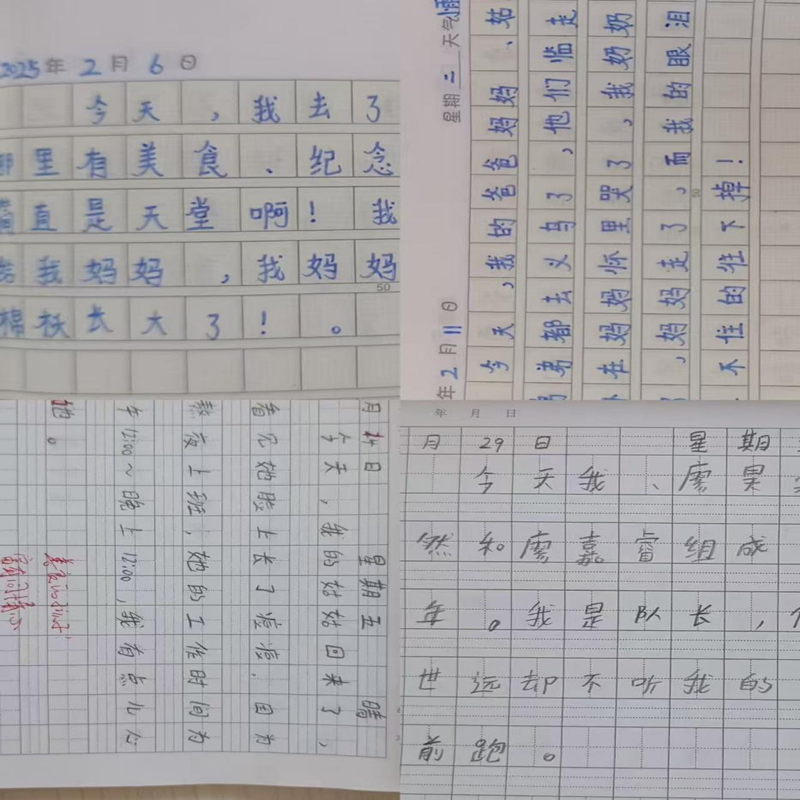 2025年2月6日
今天，我去了
里有美食、纪念
直是天堂啊！我
我妈妈，我妈妈
50
棉袄长大了！。
年2月11日 星期二 天气晴
今天，我的爸爸妈妈、姑
弟都去义乌了，他们临走
在妈妈怀里哭了，我奶奶
，妈妈走了，而我的眼泪
50
不住的往下掉！
月14日 星期五 晴
今天，我的姑姑回来了，
看见她脸上长了痘痘.因为
熬夜上班，她的工作时间为
午12:00～晚上12:00，我有点儿心
她。
年 月 日
月29日 星期
今天我、廖昊
然和廖嘉睿组成
年。我是队长，
世远却不听我的
前跑。